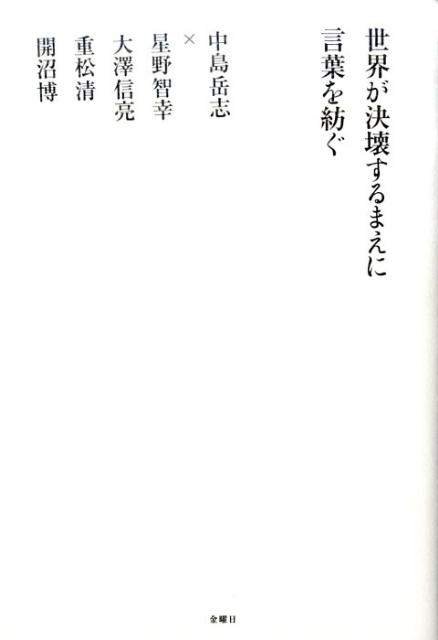 世界が決壊するまえに
言葉を紡ぐ
中島岳志
×
星野智幸
大澤信亮
重松清
開沼博
金曜日